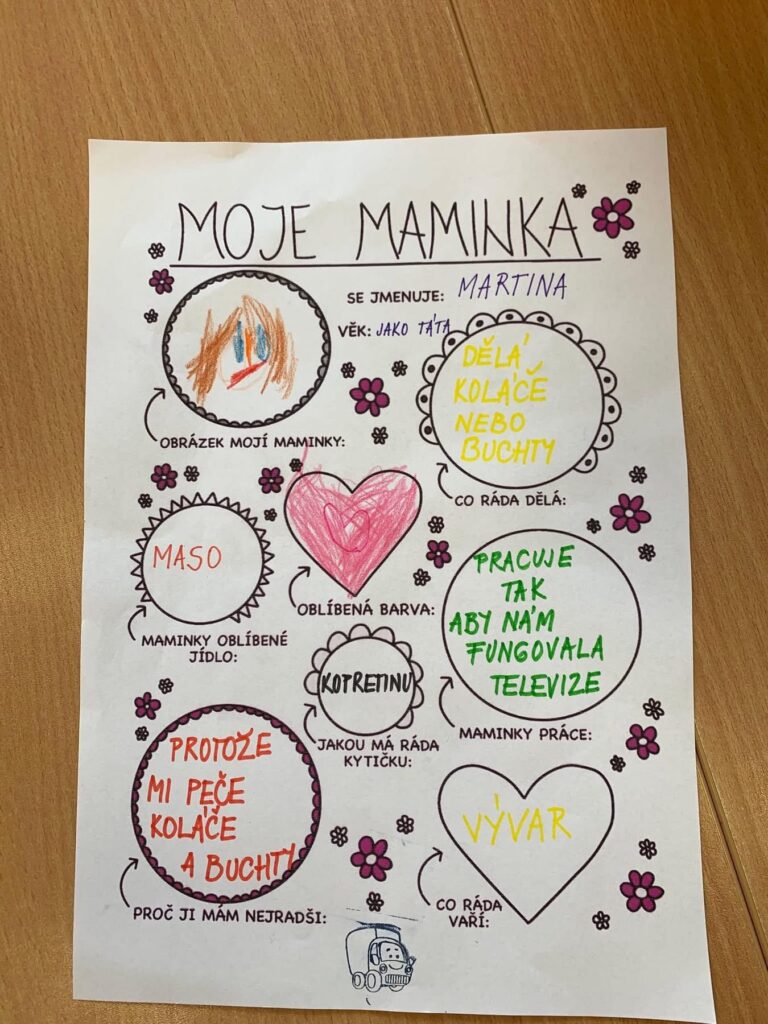 MOJE MAMINKA
SE JMENUJE: MARTINA
VĚK: JAKO TÁTA
OBRÁZEK MOJÍ MAMINKY:
DĚLÁ
KOLÁČĚ
NEBO
BUCHTY
CO RÁDA DĚLÁ:
MASO
MAMINKY OBLÍBENÉ
JÍDLO:
OBLÍBENÁ BARVA:
PRACUJE
TAK
ABY NÁM
FUNGOVALA
TELEVIZE
MAMINKY PRÁCE:
KOTRETINU
JAKOU MÁ RÁDA
KYTIČKU:
PROTOŽE
MI PEČE
KOLÁČE
A BUCHTY
PROČ JI MÁM NEJRADŠI:
VÝVAR
CO RÁDA
VAŘÍ: